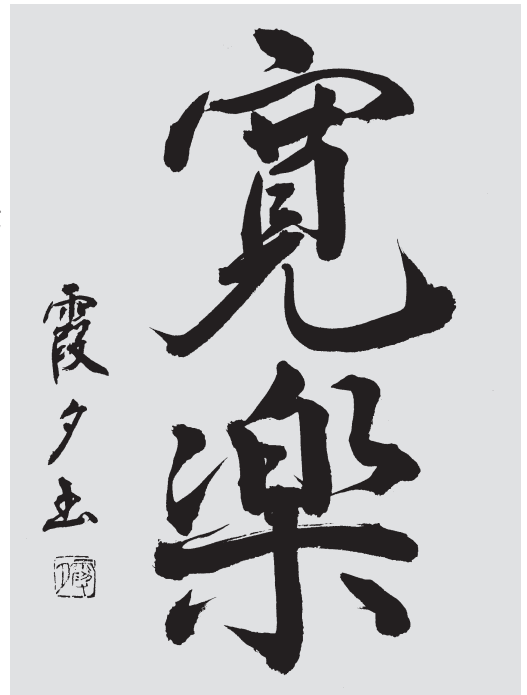 寛楽
霞夕書